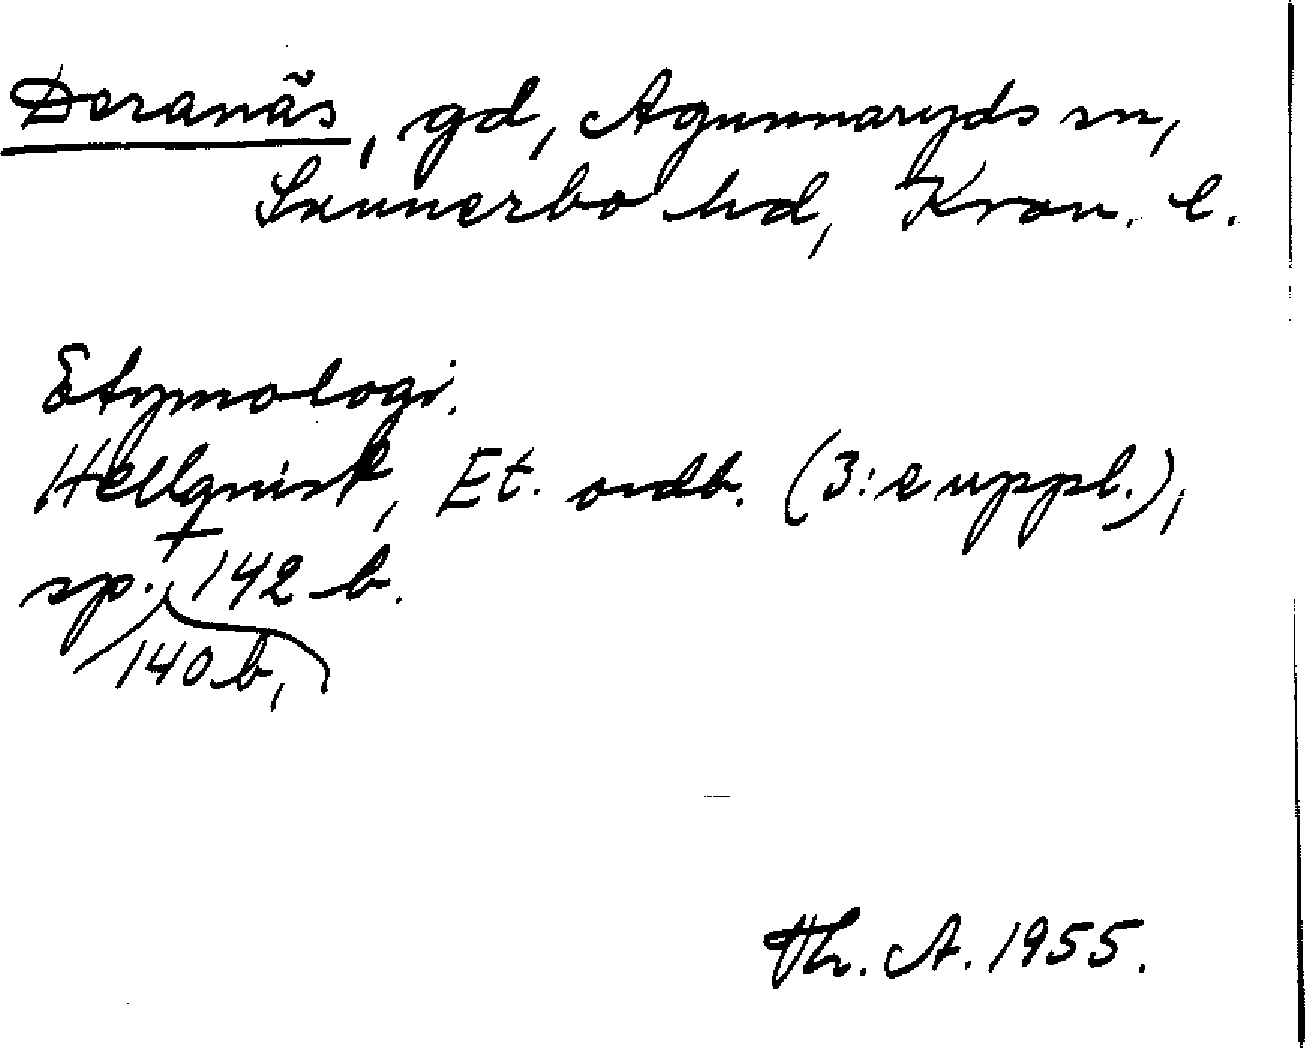 Deranäs, gd, Agunnaryds sn,
Sunnerbo hd, Kron. l.
Etymologi.
Hellquist, Et. ordb. (3:e uppl.),
sp. 142 b.
140 b,
Th. A. 1955.